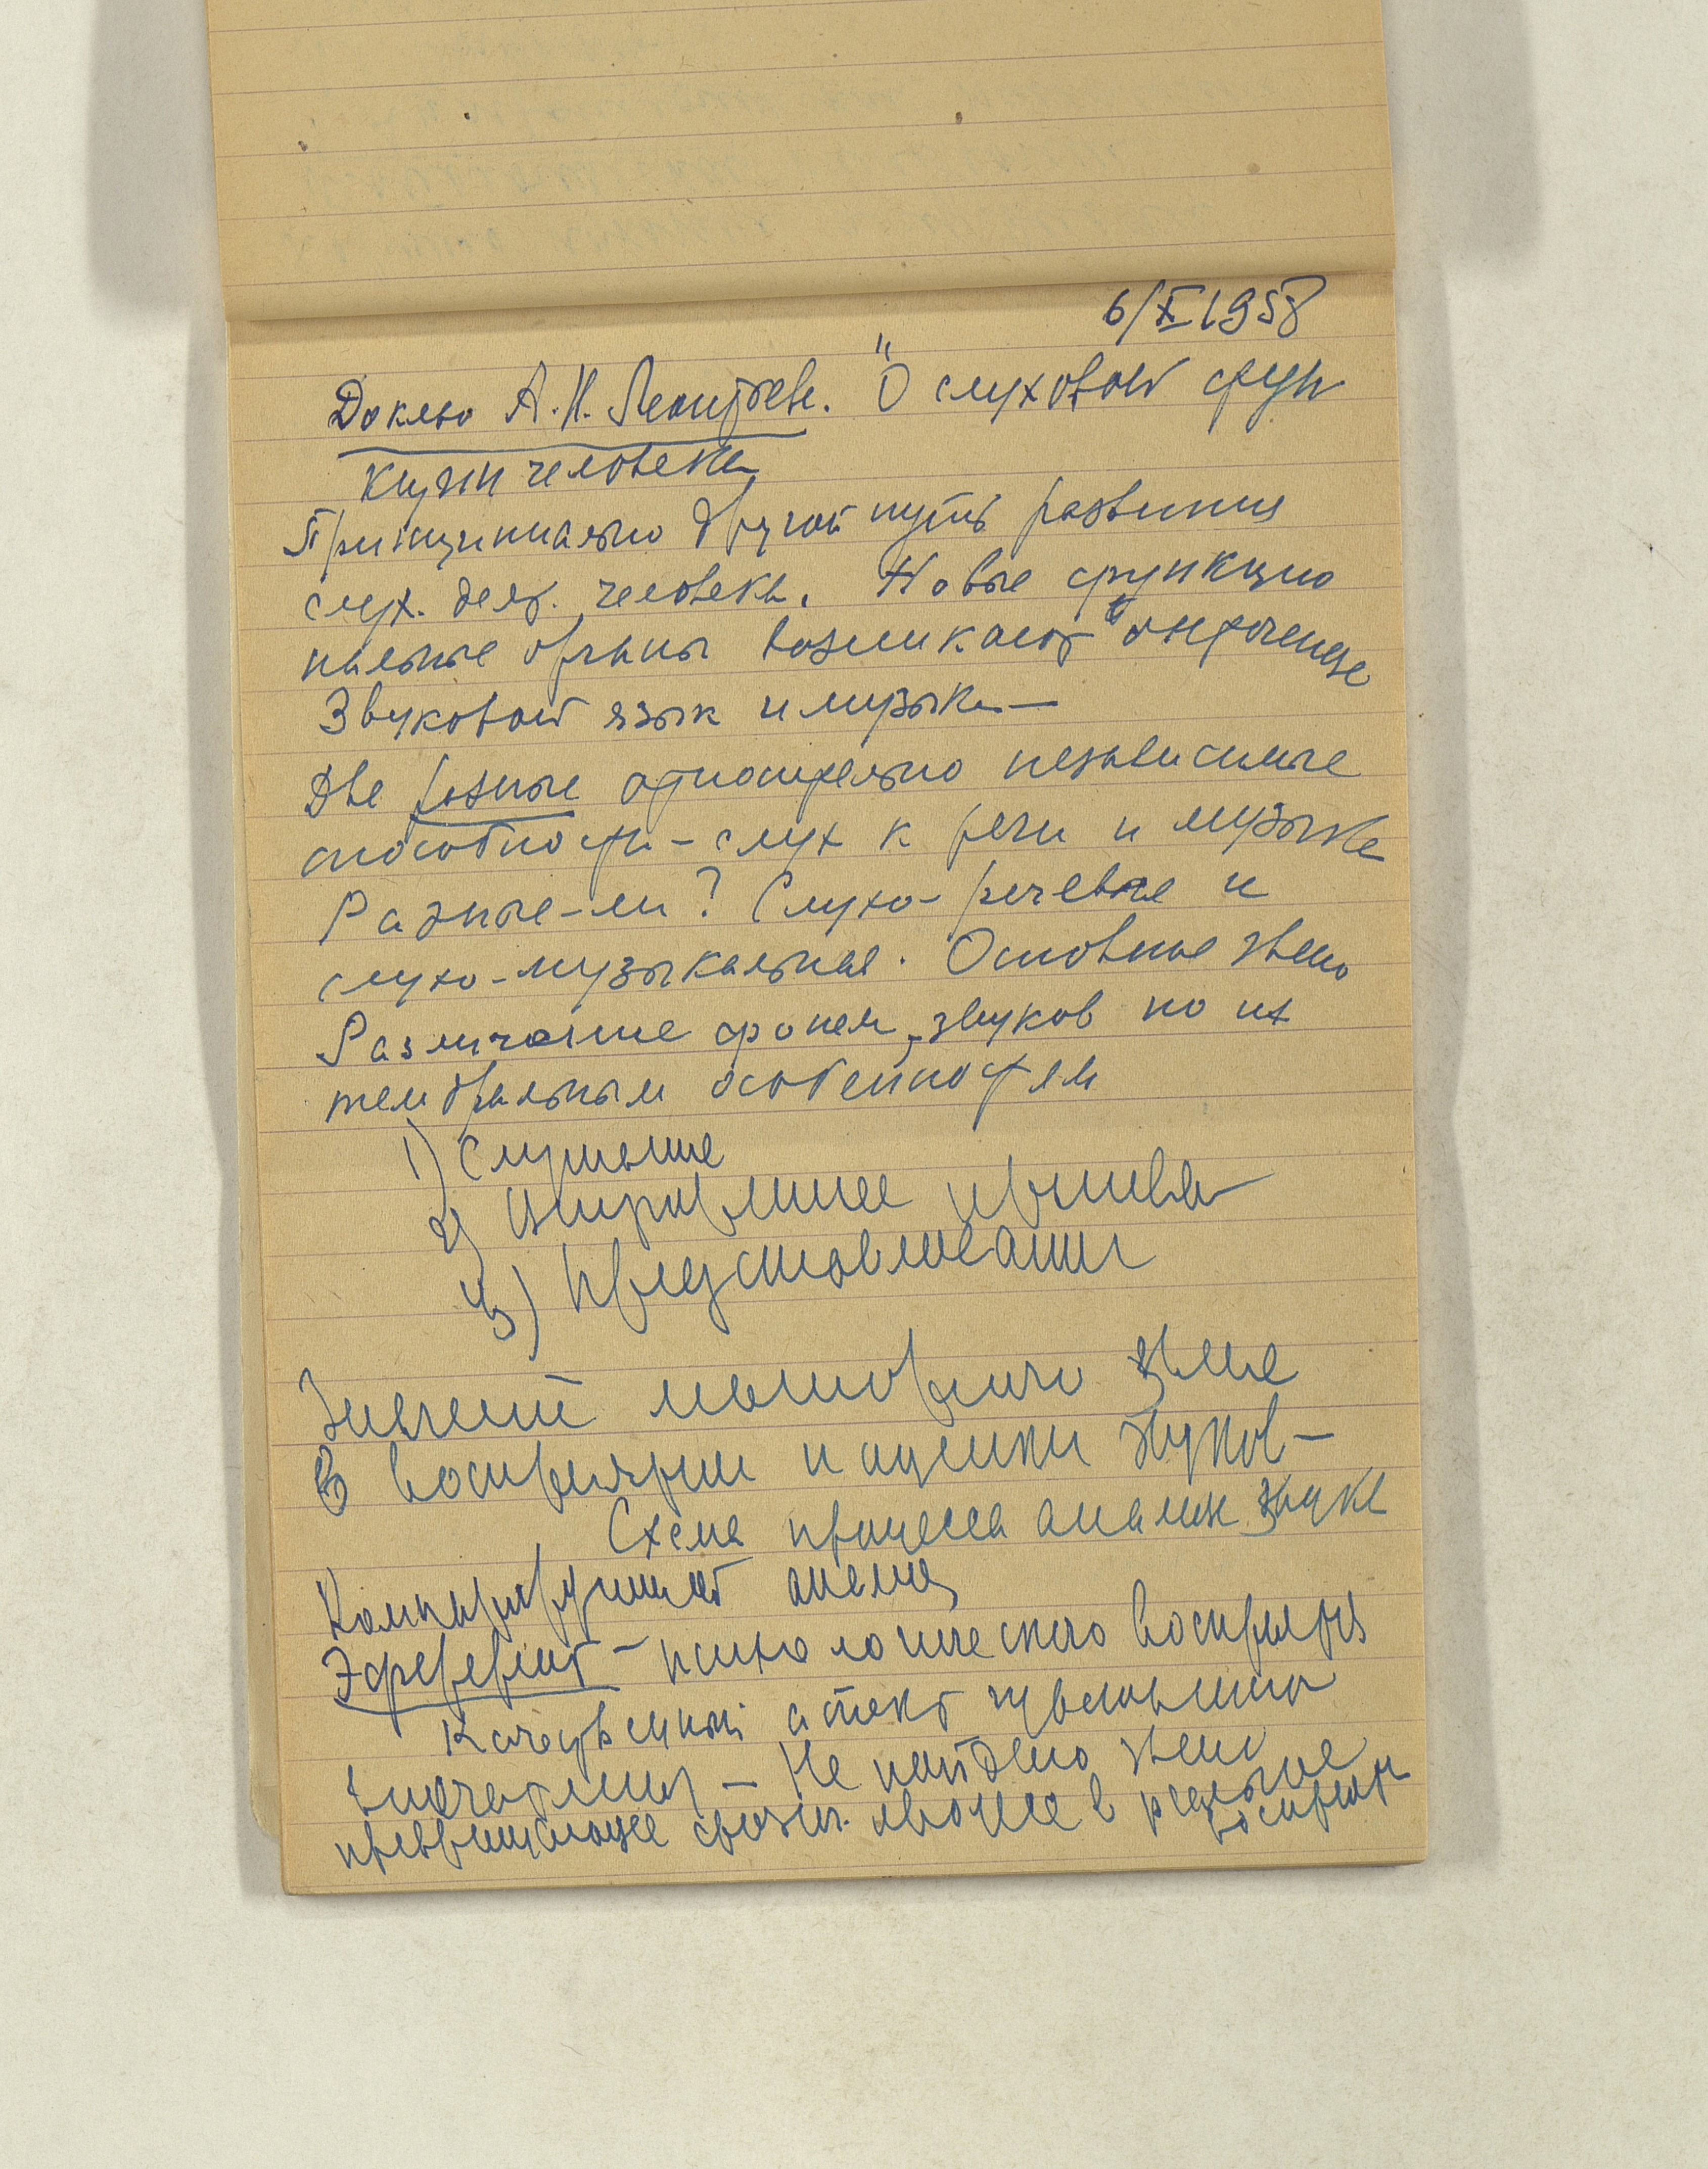 6/X 1958
Доклад А.Н. Леонтьева. "О слуховой фун
кции человека
Принципиально другой путь развития
слух. деят. человека. Новые функцио
нальные органы возникают в онтогенезе
Звуковой язык и музыка —
Две разные относительно независимые
способности - слух к речи и музыке
Разные-ли? Слухо-речевые и
слухо-музыкальная. Основное звено
Различение фонем, звуков по их
тембральным особенностям
1) Слушание
2)
3)
Значение моторного звена
в восприятии и оценки звуков —
Схема процесса анализа звука
Компарирующий анализ
Эфферент - психологического восприятия
Качественный аспект чувственного
впечатления — Не найдено звено
превращающее в